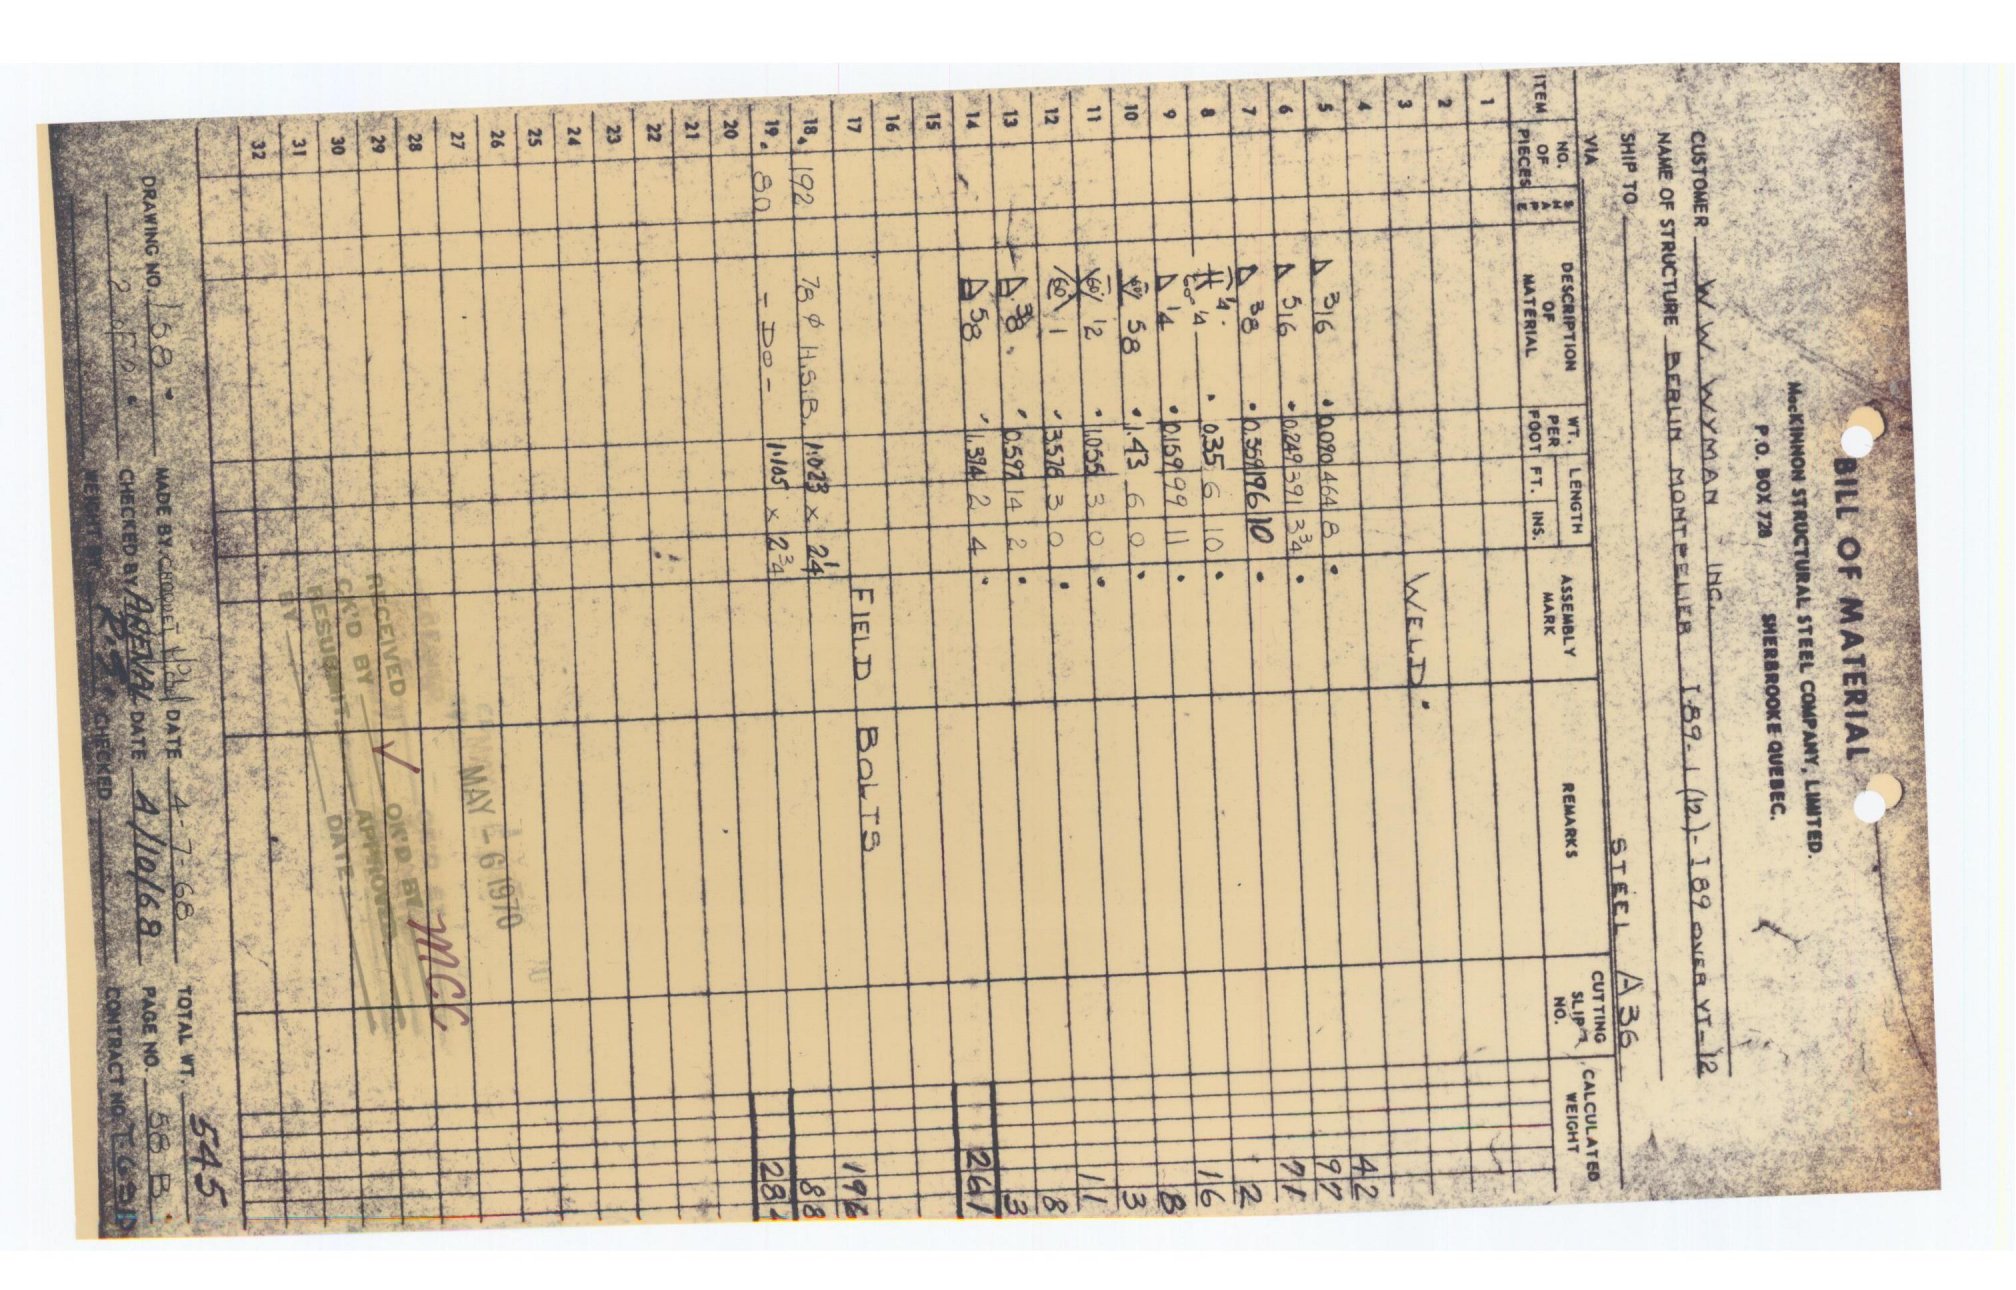 BILL OF MATERIAL
MacKINNON STRUCTURAL STEEL COMPANY, LIMITED.
P.O. BOX 728 SHERBROOKE QUEBEC.
CUSTOMER W.W. WYMAN INC.
NAME OF STRUCTURE BERLIN MONTPELIER I-89-1(12)- I 89 OVER VT-12
SHIP TO
VIA STEEL A36
ITEM NO. OF PIECES SHAPE DESCRIPTION OF MATERIAL WT. PER FOOT LENGTH FT. INS. ASSEMBLY MARK REMARKS CUTTING SLIP NO. CALCULATED WEIGHT
1
2
3 WELD.
4
5 316 0.090 464 8 42
6 516 0.249 391 3 3/4 97
7 38 0.359 196 10 71
8 1/4 60° 1/4 0.35 6 10 2
9 1/4 0.159 99 11 16
10 60 58 1.43 6 0 8
11 60 1/2 1.055 3 0 3
12 60 1 3.578 3 0 11
13 38 0.597 14 2 8
14 58 1.394 2 4 3
261
15
16
17 FIELD BOLTS
18 192 78 Ø H.S.B. 1.023 x 2 1/4 196
19 80 - DO - 1.105 x 2 3/4 88
284
20
21
22
23
24
25
26
27
28
29
30
31
32
MAY - 6 1970
RECEIVED OK'D BY MCC
CK'D BY APPROVED
RESUBMIT
BY DATE
TOTAL WT. 545
DRAWING NO. 158 MADE BY DATE 4-7-68 PAGE NO. 58 B
2 CHECKED BY ARENAL DATE A/10/68 CONTRACT NO.
WEIGHT BY R.S CHECKED